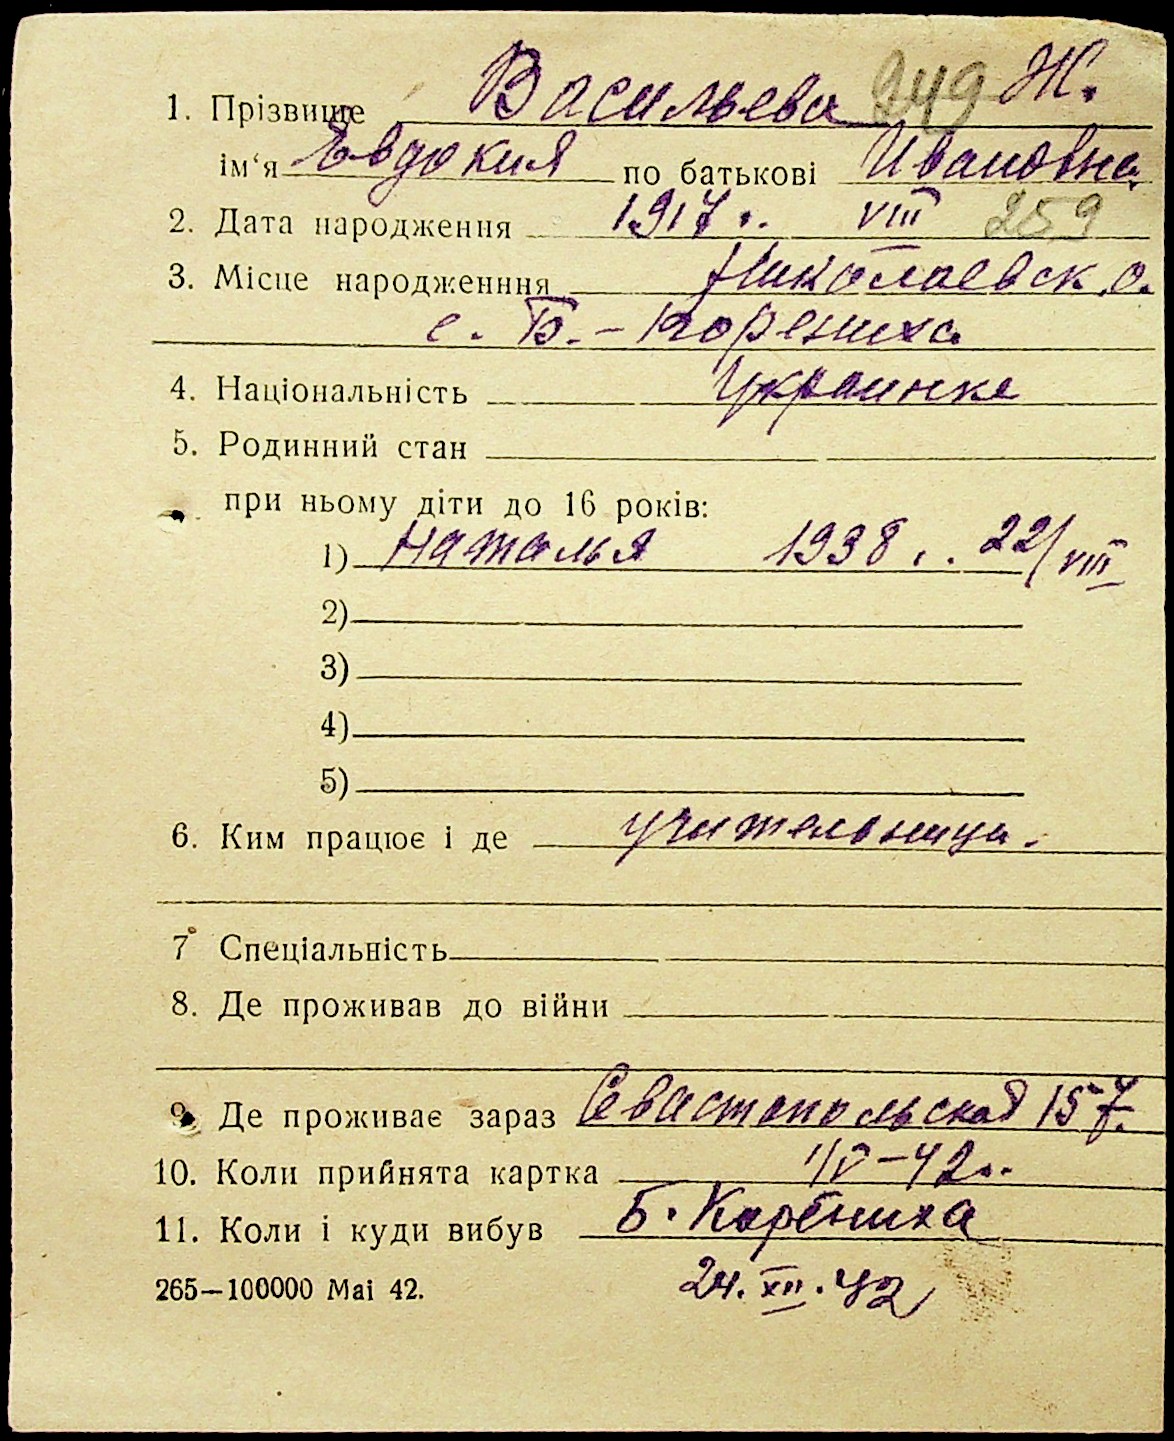 1. Прізвище Васильева 249 Ж.
ім‘я Евдокия по батькові Ивановна
2. Дата народження 1917 г. VIII 259
3. Місце народженння Николаевск. о.
с. Б. – Корениха
4. Національність Украинка
5. Родинний стан
при ньому діти до 16 років:
1) Наталья 1938 г. 22/VIII
2)
3)
4)
5)
6. Ким працює і де учительница.
7 Спеціальність
8. Де проживав до війни
9 Де проживає зараз Севастопольская 157.
10. Коли прийнята картка 1/V – 42 г.
11. Коли і куди вибув Б. Корениха
265—100000 Mai 42. 24. XII. 42